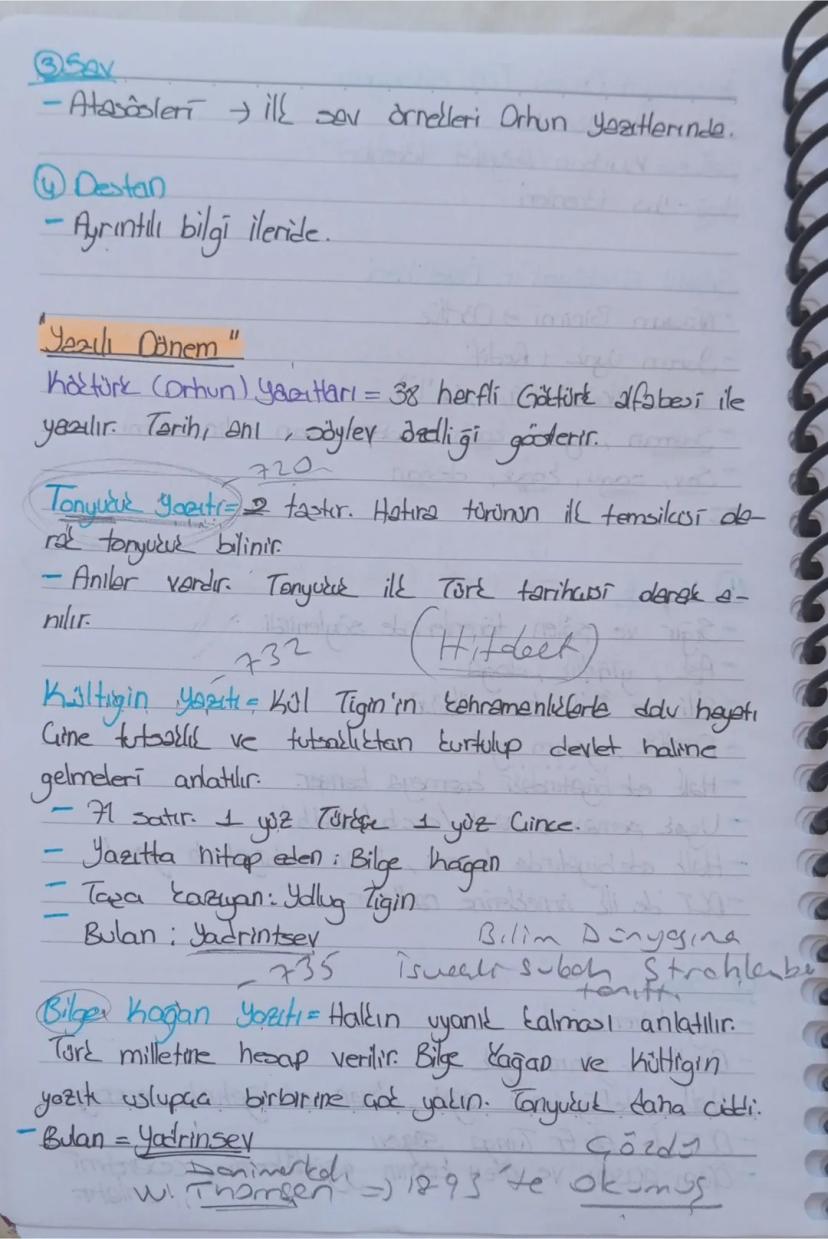 ③ Sav
- Atasözleri → ilk sav örnekleri Orhun yazıtlarında.
④ Destan
- Ayrıntılı bilgi ileride.
"Yazılı Dönem"
Köktürk (Orhun) Yazıtları = 38 harfli Göktürk alfabesi ile
yazılır. Tarih, anı, söylev özelliği gösterir.
720
Tonyukuk Yazıtı = 2 taştır. Hatıra türünün ilk temsilcisi ola-
rak tonyukuk bilinir.
- Anılar vardır. Tonyukuk ilk Türk tarihçisi olarak a-
nılır.
732 (Hitabet)
Kültigin Yazıtı = Kül Tigin'in kahramanlıklarla dolu hayatı
Çine tutsaklık ve tutsaklıktan kurtulup devlet haline
gelmeleri anlatılır.
- 71 satır. 1 yüz Türkçe 1 yüz Çince.
- Yazıtta hitap eden : Bilge kağan
- Taşa kazıyan : Yolluğ Tigin
- Bulan : Yadrintsev Bilim Dünyasına
735 İsveçli subay Strahlenbe
tanıttı
Bilge Kağan Yazıtı = Halkın uyanık kalması anlatılır.
Türk milletine hesap verilir. Bilge Kağan ve Kültigin
yazıtı uslupça birbirine çok yakın. Tonyukuk daha ciddi.
- Bulan = Yadrinsev Çözdü
Danimarkalı
W. Thomsen => 1893'te okumuş